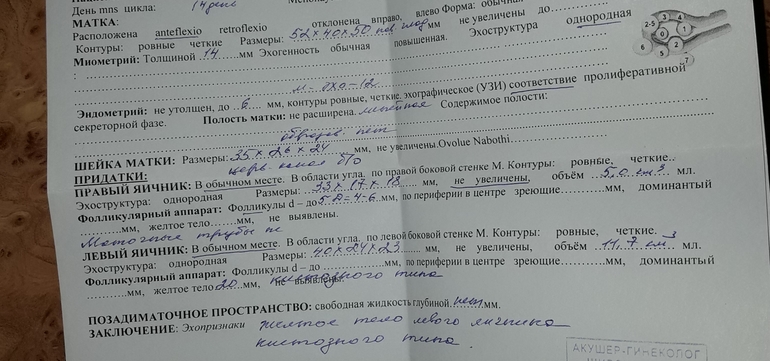 День mns цикла: 14 день
МАТКА:
Расположена anteflexio retroflexio отклонена вправо, влево Форма: обычная
Контуры: ровные четкие Размеры: 52×40×50 мм не увеличены до
Миометрий: Толщиной 14 мм Эхогенность обычная повышенная. Эхоструктура однородная
м-эхо-12
Эндометрий: не утолщен, до 6 мм, контуры ровные, четкие, эхографическое (УЗИ) соответствие пролиферативной
секреторной фазе. Полость матки: не расширена. линейная Содержимое полости:
образов. нет
ШЕЙКА МАТКИ: Размеры: 35×26×24 мм, не увеличены. Ovolue Nabothi
ПРИДАТКИ: церв. канал б/о
ПРАВЫЙ ЯИЧНИК: В обычном месте. В области угла. по правой боковой стенке М. Контуры: ровные, четкие.
Эхоструктура: однородная Размеры: 33×17×18 мм, не увеличены, объём 5,0 см3 мл.
Фолликулярный аппарат: Фолликулы d – до 5-8=4-6 мм, по периферии в центре зреющие мм, доминантый
мм, желтое тело мм, не выявлены.
Маточные трубы
ЛЕВЫЙ ЯИЧНИК: В обычном месте. В области угла. по левой боковой стенке М. Контуры: ровные, четкие.
Эхоструктура: однородная Размеры: 40×24×23 мм, не увеличены, объём 11,7 см3 мл.
Фолликулярный аппарат: Фолликулы d – до мм, по периферии в центре зреющие мм, доминантый
мм, желтое тело 20 мм, не выявлены. кистозного типа
ПОЗАДИМАТОЧНОЕ ПРОСТРАНСТВО: свободная жидкость глубиной. нет мм.
ЗАКЛЮЧЕНИЕ: Эхопризнаки желтое тело левого яичника
кистозного типа.
АКУШЕР-ГИНЕКОЛОГ
2-5
3
4
1
0
2
6
5
7